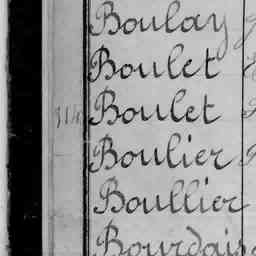 Boulay
Boulet
314 Boulet
Boulier
Boullier
Bourdais